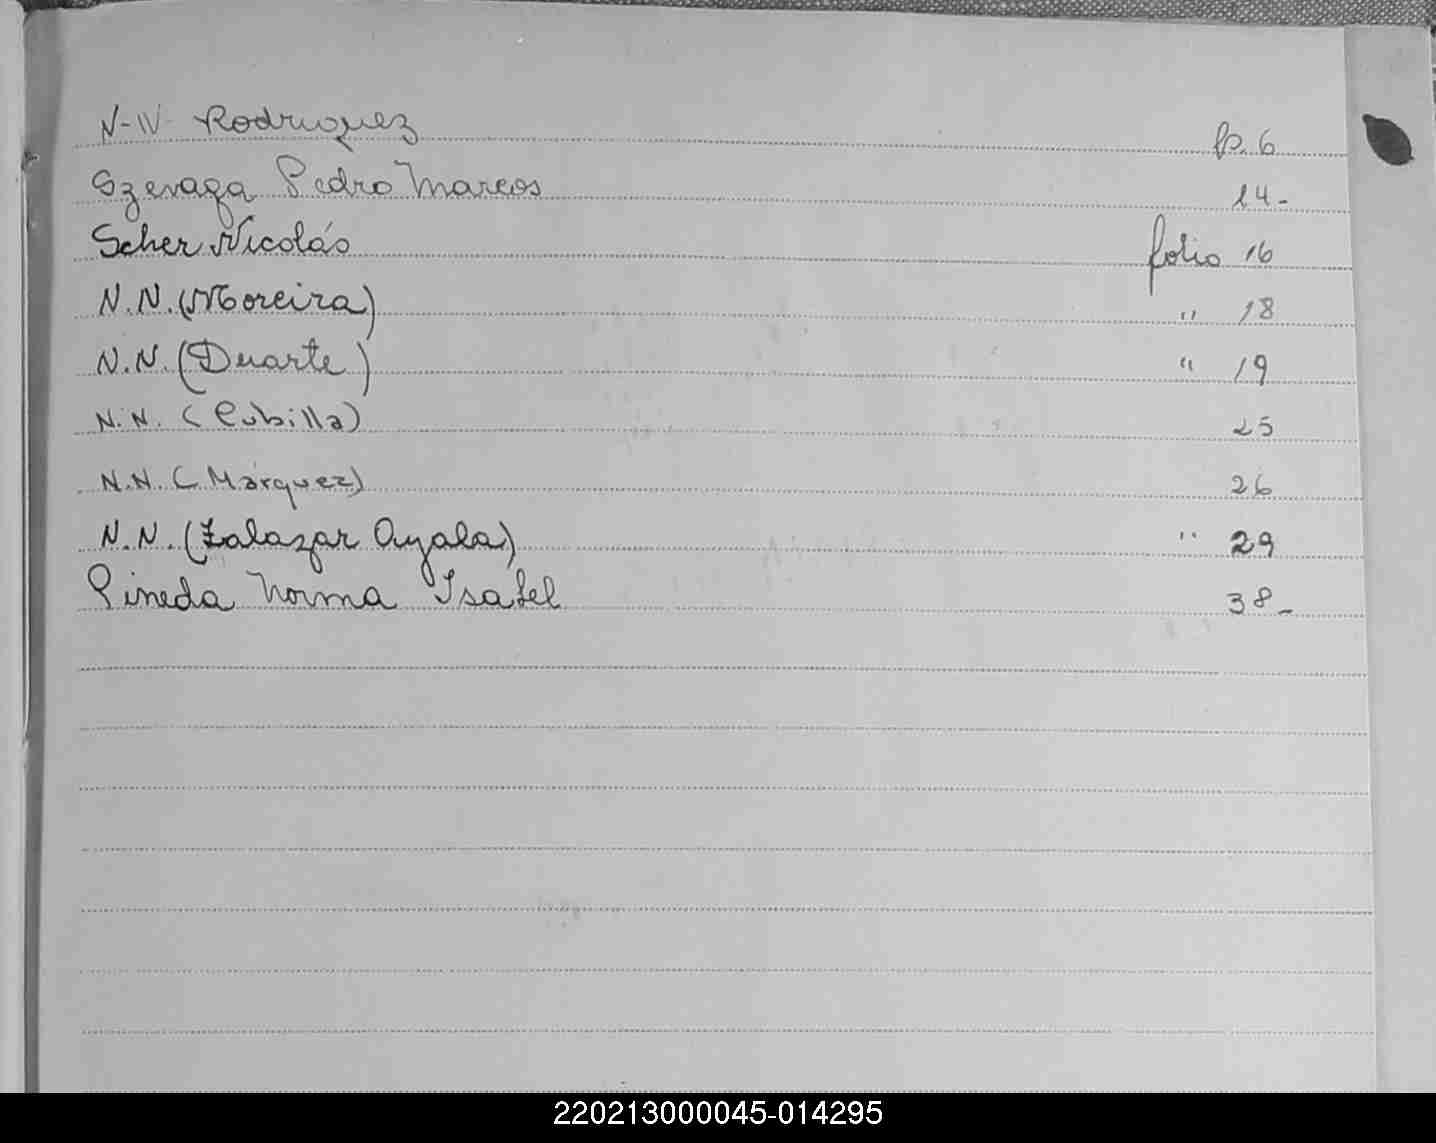 N-N- Rodriguez fo. 6
Szevaga Pedro Marcos 14-
Scher Nicolás folio 16
N.N. (Moreira) " 18
N.N. (Duarte) " 19
N.N. (Cubilla) 25
N.N. (Márquez) 26
N.N. (Zalazar Ayala) " 29
Pineda Norma Isabel 38-
220213000045-014295